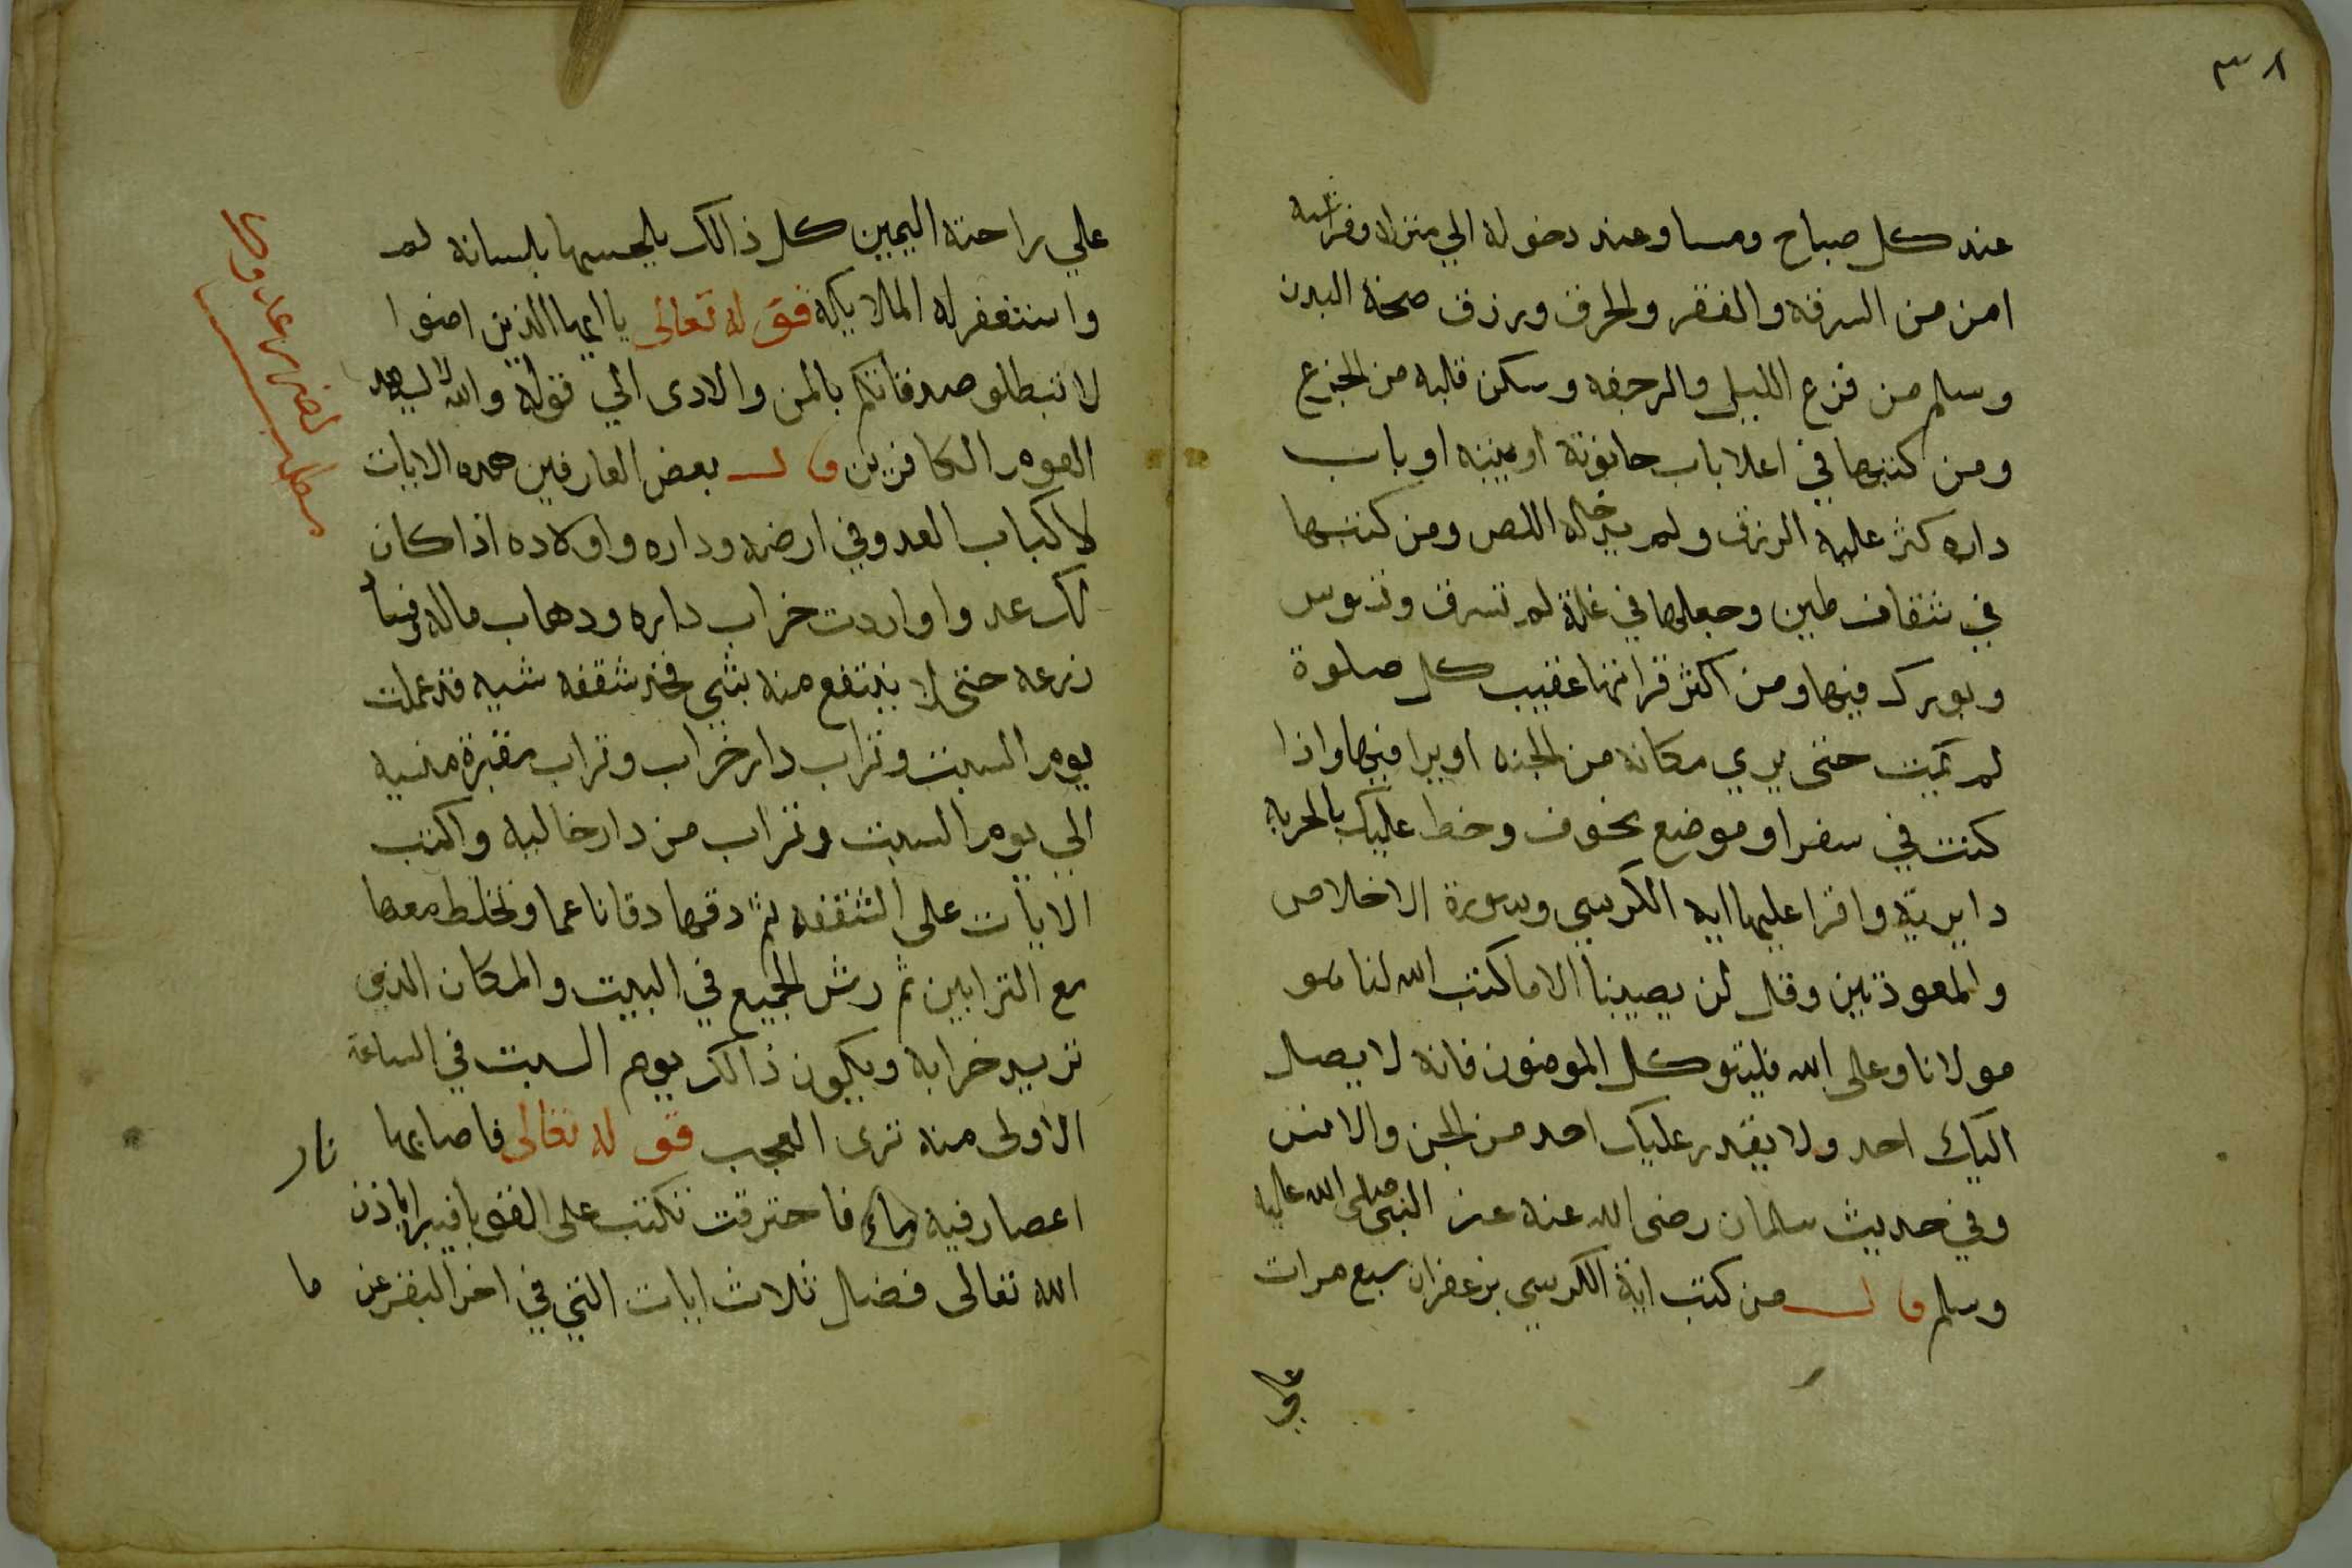 ٣٨
عند كل صباح ومسا وعند دخوله الي منزله وفراشه
امن من السرقه والفقر والحرق ورزق صحة البدن
وسلم من فزع الليل والرجفه وسكن قلبه من الجزع
ومن كتبها في اعلا باب حانوته او بيته او باب
داره كثر عليه الرزق ولم يدخله اللص ومن كتبها
في شقاف طين وجعلها في غلة لم تسرق وتسوس
وبورك فيها ومن اكثر قراتها عقيب كل صلوة
لم يمت حتى يري مكانه من الجنه او يرا فيها واذا
كنت في سفر او موضع مخوف وخط عليك بالحربه
دايرة واقرا عليها ايه الكرسي وسورة الاخلاص
والمعوذتين وقل لن يصيبنا الا ما كتب الله لنا هو
مولانا وعلى الله فليتوكل المومنون فانه لا يصل
اليك احد ولا يقدر عليك احد من الجن والانس
وفي حديث سلمان رضى الله عنه عن النبي صلى الله عليه
وسلم قال من كتب اية الكرسي بزعفران سبع مرات
علي
علي راحته اليمين كل ذالك يلحسها بلسانه لم
واستغفر له الملايكه قوله تعالى يا ايها الذين امنوا
لا تبطلو صدقاتكم بالمن والادى الي قوله والله لا يهد
القوم الكافرين قال بعض العارفين هده الايات
لاكباب العدو في ارضه وداره واولاده اذا كان
لك عدوا واردت خراب داره ودهاب ماله وفسا
زرعه حتى لا ينتفع منه بشي فخد شقفه نييه قد عملت
يوم السبت وتراب دار خراب وتراب مقبرة منسيه
الي يوم السبت وتراب من دار خاليه واكتب
الايات على الشقفه ثم دقها دقا ناعما وتخلط معها
مع الترابين ثم رش الجميع في البيت والمكان الذي
تريد خرابه ويكون ذالك يوم السبت في الساعة
الاولى منه ترى العجب قوله تعالى فاصابها
اعصار فيه نار فاحترقت تكتب على القوبا فيبرا باذن
نار
الله تعالى فضل ثلاث ايات التي في اخر البقر عن
ما